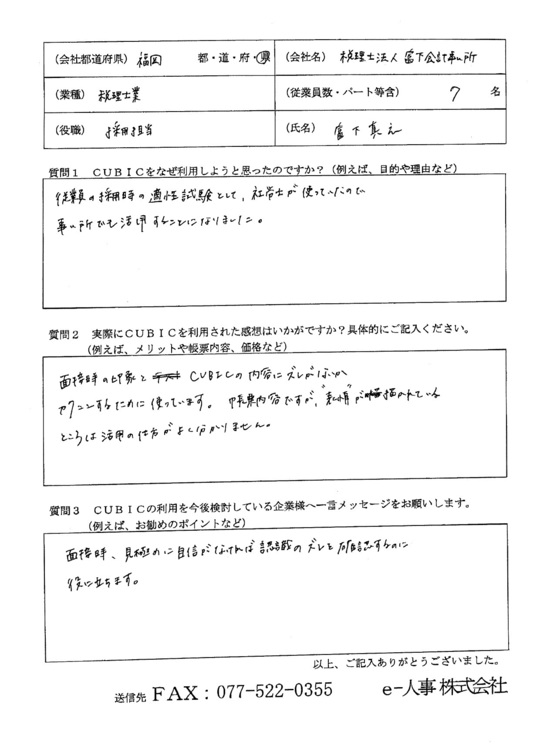 (会社都道府県) 福岡 都・道・府・県
(会社名) 税理士法人 富下会計事ム所
(業種) 税理士業
(従業員数・パート等含) 7 名
(役職) 採用担当
(氏名) 富下
質問1 CUBICをなぜ利用しようと思ったのですか?(例えば、目的や理由など)
従業員の採用時の適性試験として、社労士が使っていたので
事ム所でも活用することになりました。
質問2 実際にCUBICを利用された感想はいかがですか?具体的にご記入ください。
(例えば、メリットや帳票内容、価格など)
面接時の印象と CUBICの内容にズレがないか
カクニンするために使っています。 帳票内容ですが、"表情"が描かれている
ところは活用の仕方がよく分かりません。
質問3 CUBICの利用を今後検討している企業様へ一言メッセージをお願いします。
(例えば、お勧めのポイントなど)
面接時、見極めに自信がなければ認識のズレを確認するのに
役に立ちます。
以上、ご記入ありがとうございました。
送信先 FAX:077-522-0355 e-人事 株式会社